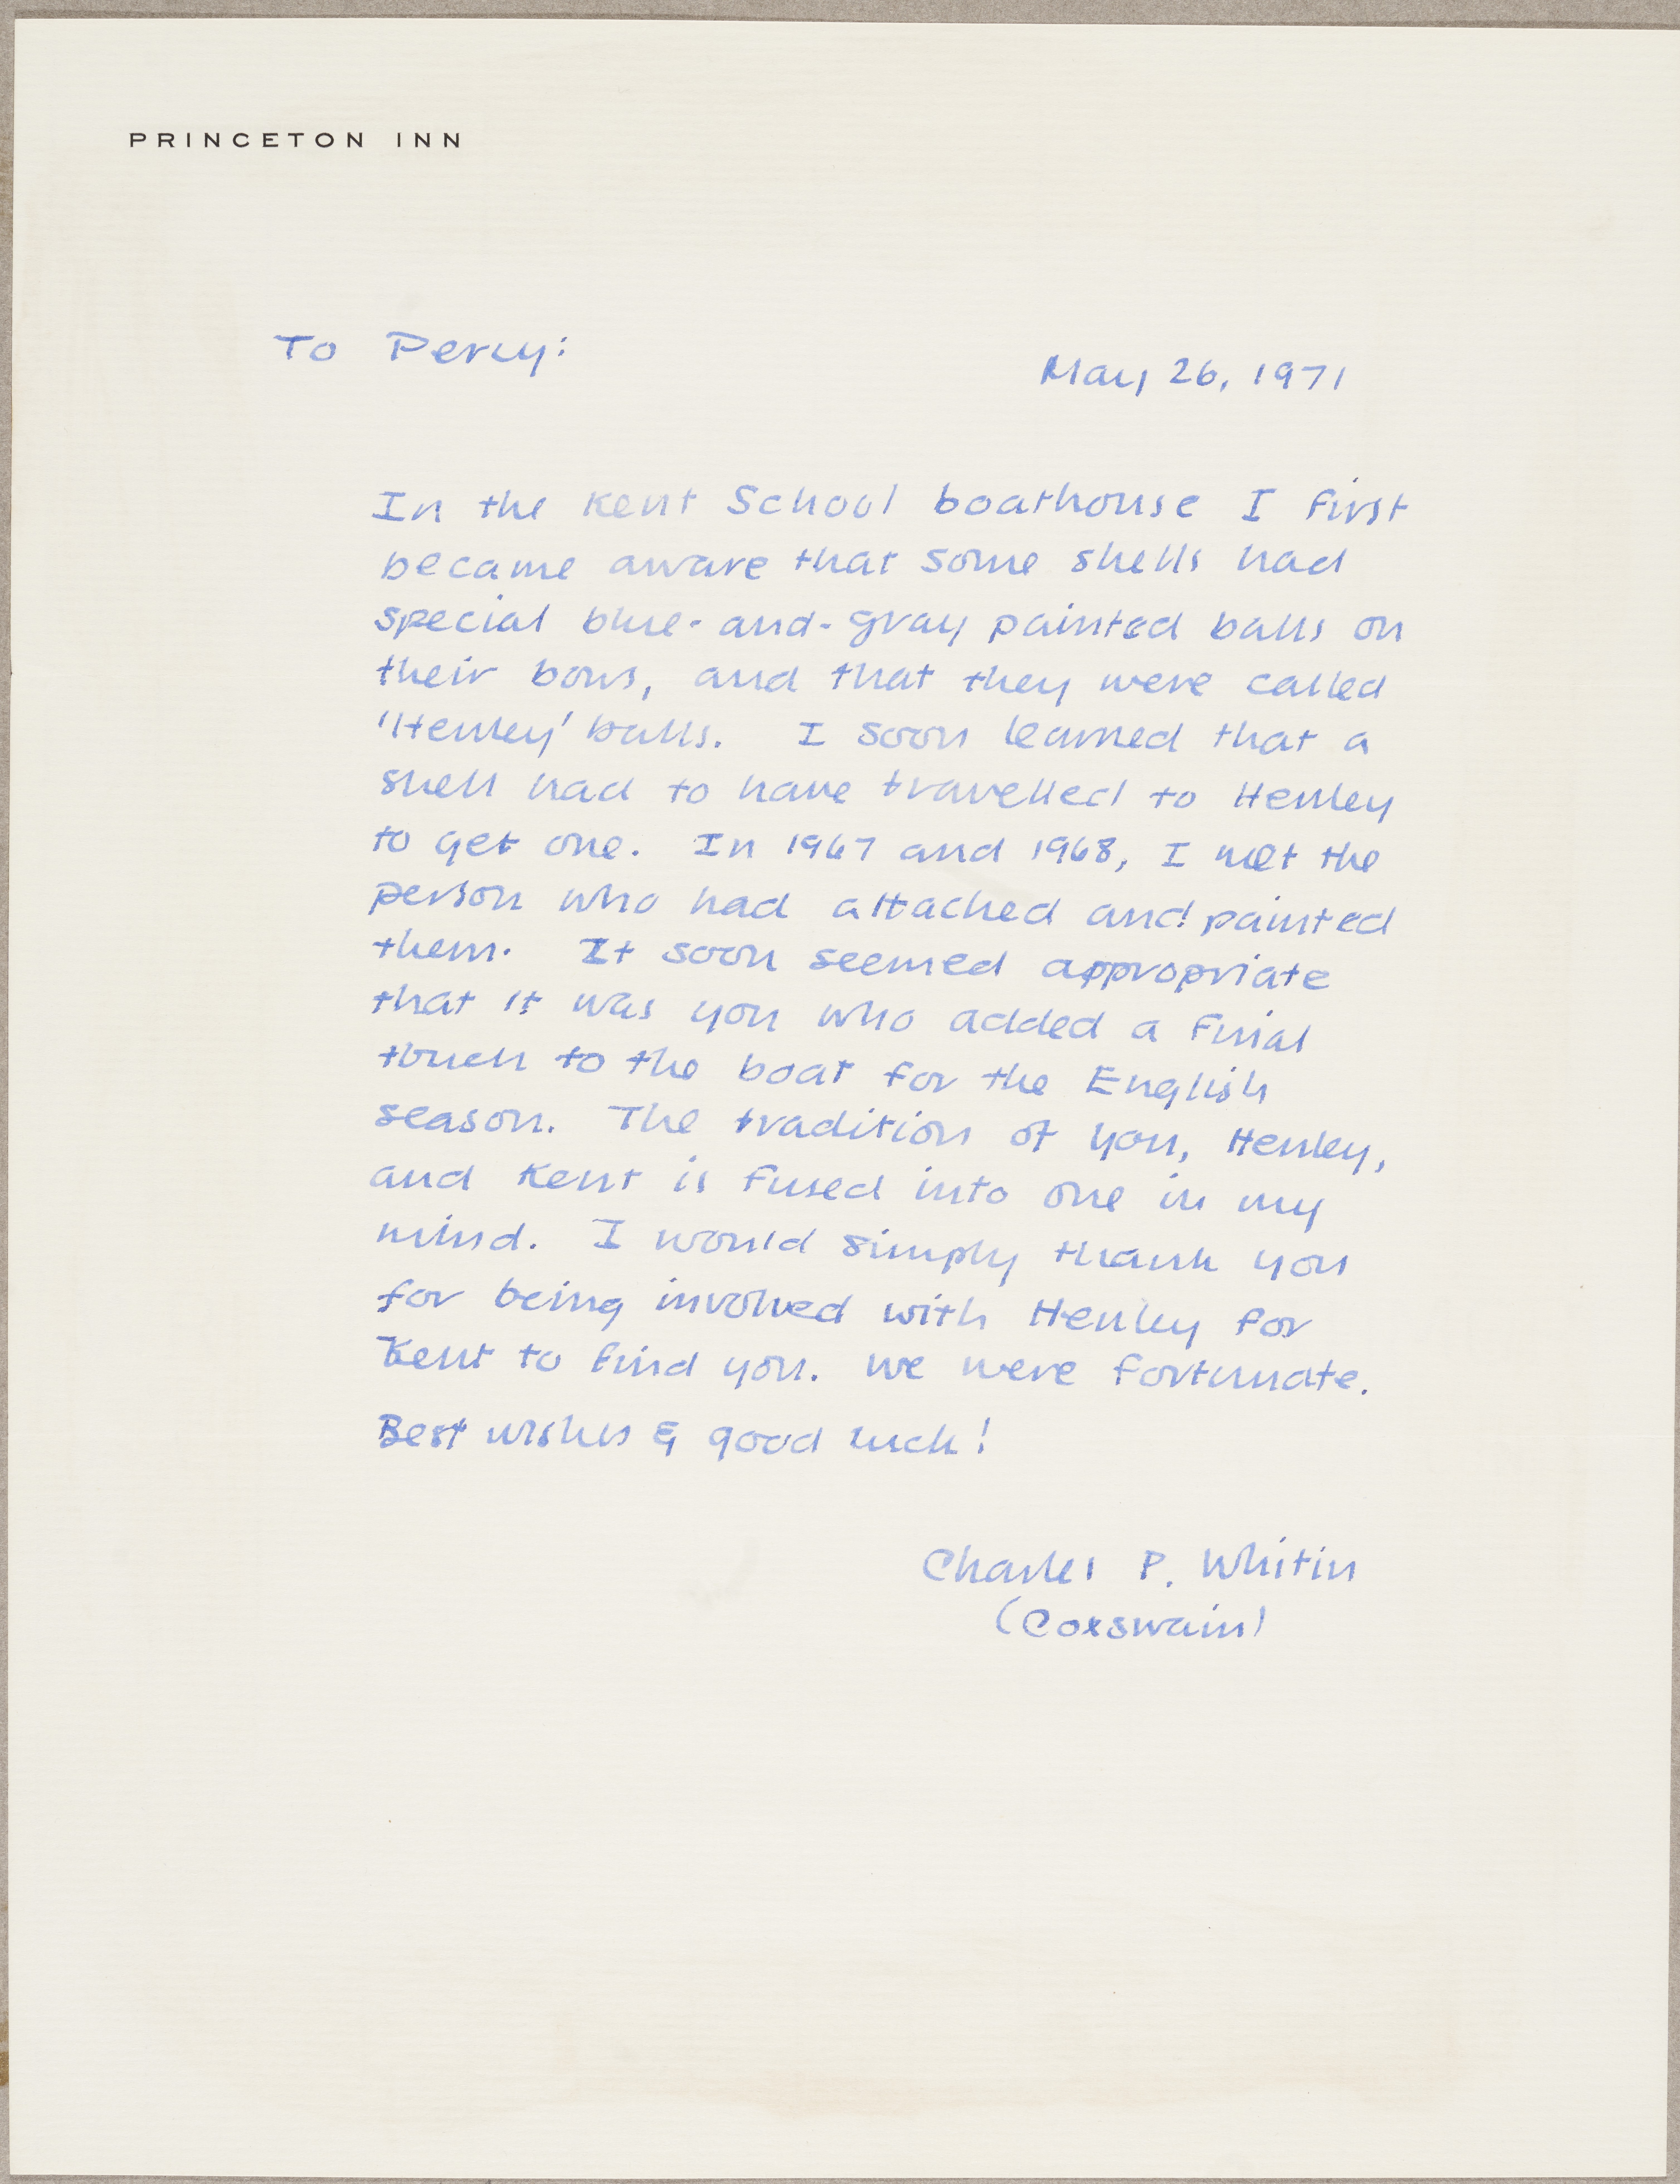 PRINCETON INN
To Percy:
May 26, 1971
In the Kent School boathouse I first
became aware that some shells had
special blue-and-gray painted balls on
their bows, and that they were called
'Henley' balls. I soon learned that a
shell had to have travelled to Henley
to get one. In 1967 and 1968, I met the
person who had attached and painted
them. It soon seemed appropriate
that it was you who added a final
touch to the boat for the English
season. The tradition of you, Henley,
and Kent is fused into one in my
mind. I would simply thank you
for being involved with Henley for
Kent to find you. We were fortunate.
Best wishes & good luck!
Charles P. Whitin
(Coxswain)